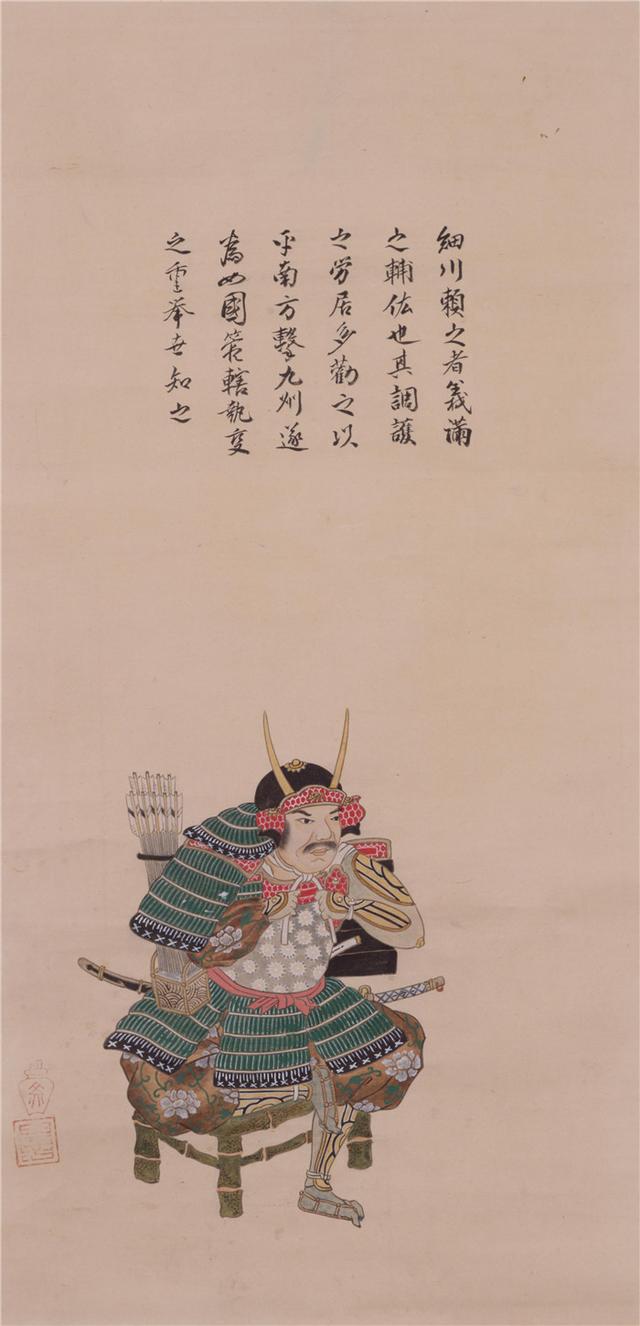 細川頼之者義満
之輔佐也其調護
之労居多勧之以
平南方撃九州遂
為四國管轄執叓
之重挙世知之